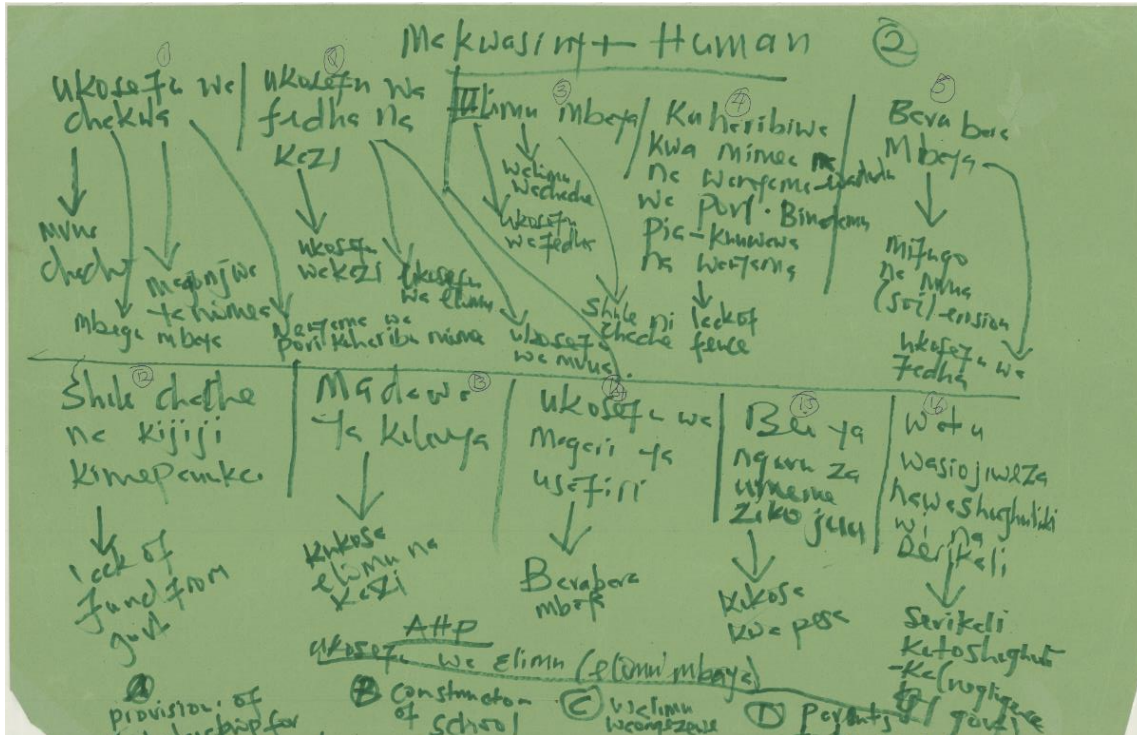 Makwasinyi - Human ②
①
ukosefu wa
chakula
mvua
chache
mbegu mbaya
magonjwa
ya mimea
wanyama wa
pori kuharibu mimea
②
ukosefu wa
fedha na
kazi
ukosefu
wa kazi
ukosefu
wa elimu
ukosefu
wa mvua.
③
Elimu mbaya
walimu
wachache
ukosefu
wa fedha
Shule ni
chache
④
Kuharibiwa
kwa mimea
na wanyama
wa pori. Binadamu
pia - kuuwawa
na wanyama
lack of
fence
⑤
Barabara
Mbaya
mifugo
na mvua
(soil)-erosion
ukosefu wa
fedha
⑫
Shule chache
na kijiji
kimepanuka.
lack of
fund from
govt
⑬
Madawa
ya kulevya
kukosa
elimu na
kazi
⑭
ukosefu wa
magari ya
usafiri
Barabara
mbaya
⑮
Bei ya
nguvu za
umeme
ziko juu
kukosa
kwa pesa
⑯
Watu
wasiojiweza
hawashughuliki
wi na
serikali
Serikali
kutoshughuli
-ka (negligence
by govt)
AHP
ukosefu wa Elimu (elimu mbaya)
Ⓐ
provision of
for
Ⓑ construction
of school
Ⓒ walimu
waongezewe
Ⓓ Parents